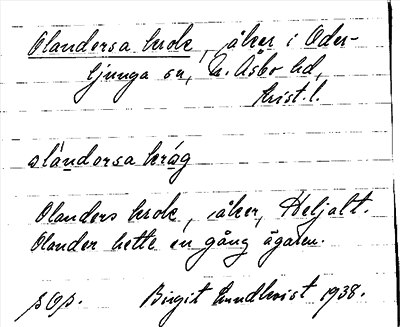 Olandersa krok, åker i Oder-
ljunga sn, N. Åsbo hd,
Krist. l.
olàndorsa kråg
Olanders krok, åker, Heljalt.
Olander hette en gång ägaren.
Birgit Lundkvist 1938.